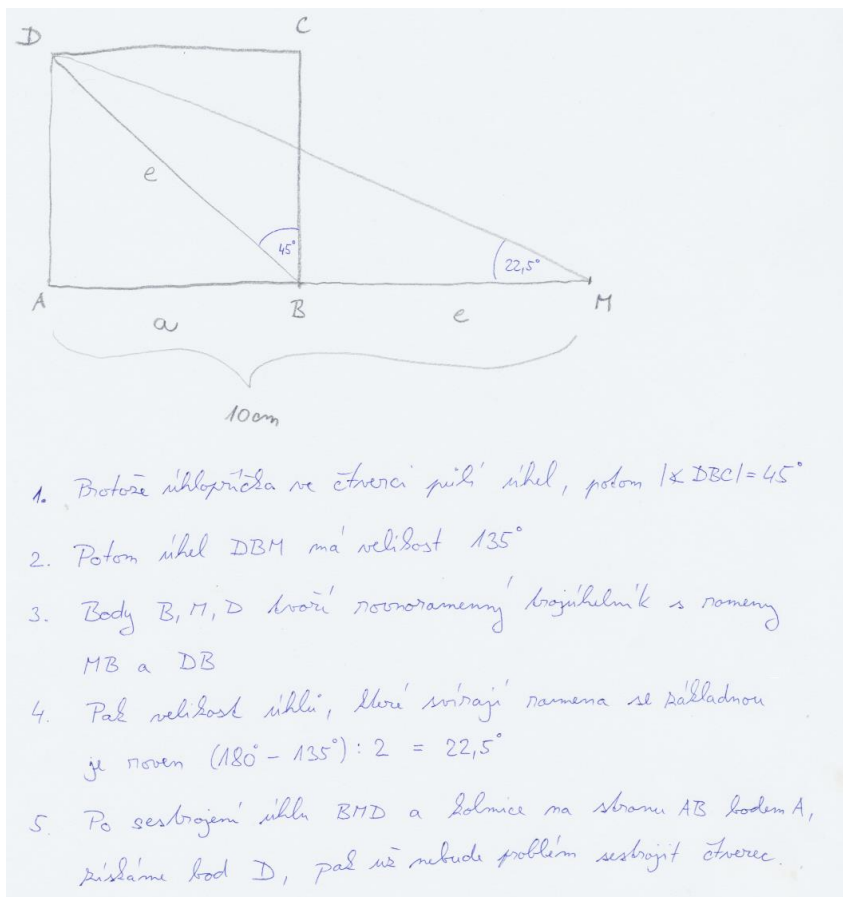 D
C
e
45°
22,5°
A
B
M
a
e
10cm
1. Protože úhlopříčka ve čtverci půlí úhel, potom |∡ DBC| = 45°
2. Potom úhel DBM má velikost 135°
3. Body B, M, D tvoří rovnoramenný trojúhelník s rameny
MB a DB
4. Pak velikost úhlů, které svírají ramena se základnou
je roven (180° - 135°) : 2 = 22,5°
5. Po sestrojení úhlu BMD a kolmice na stranu AB bodem A,
získáme bod D, pak už nebude problém sestrojit čtverec.